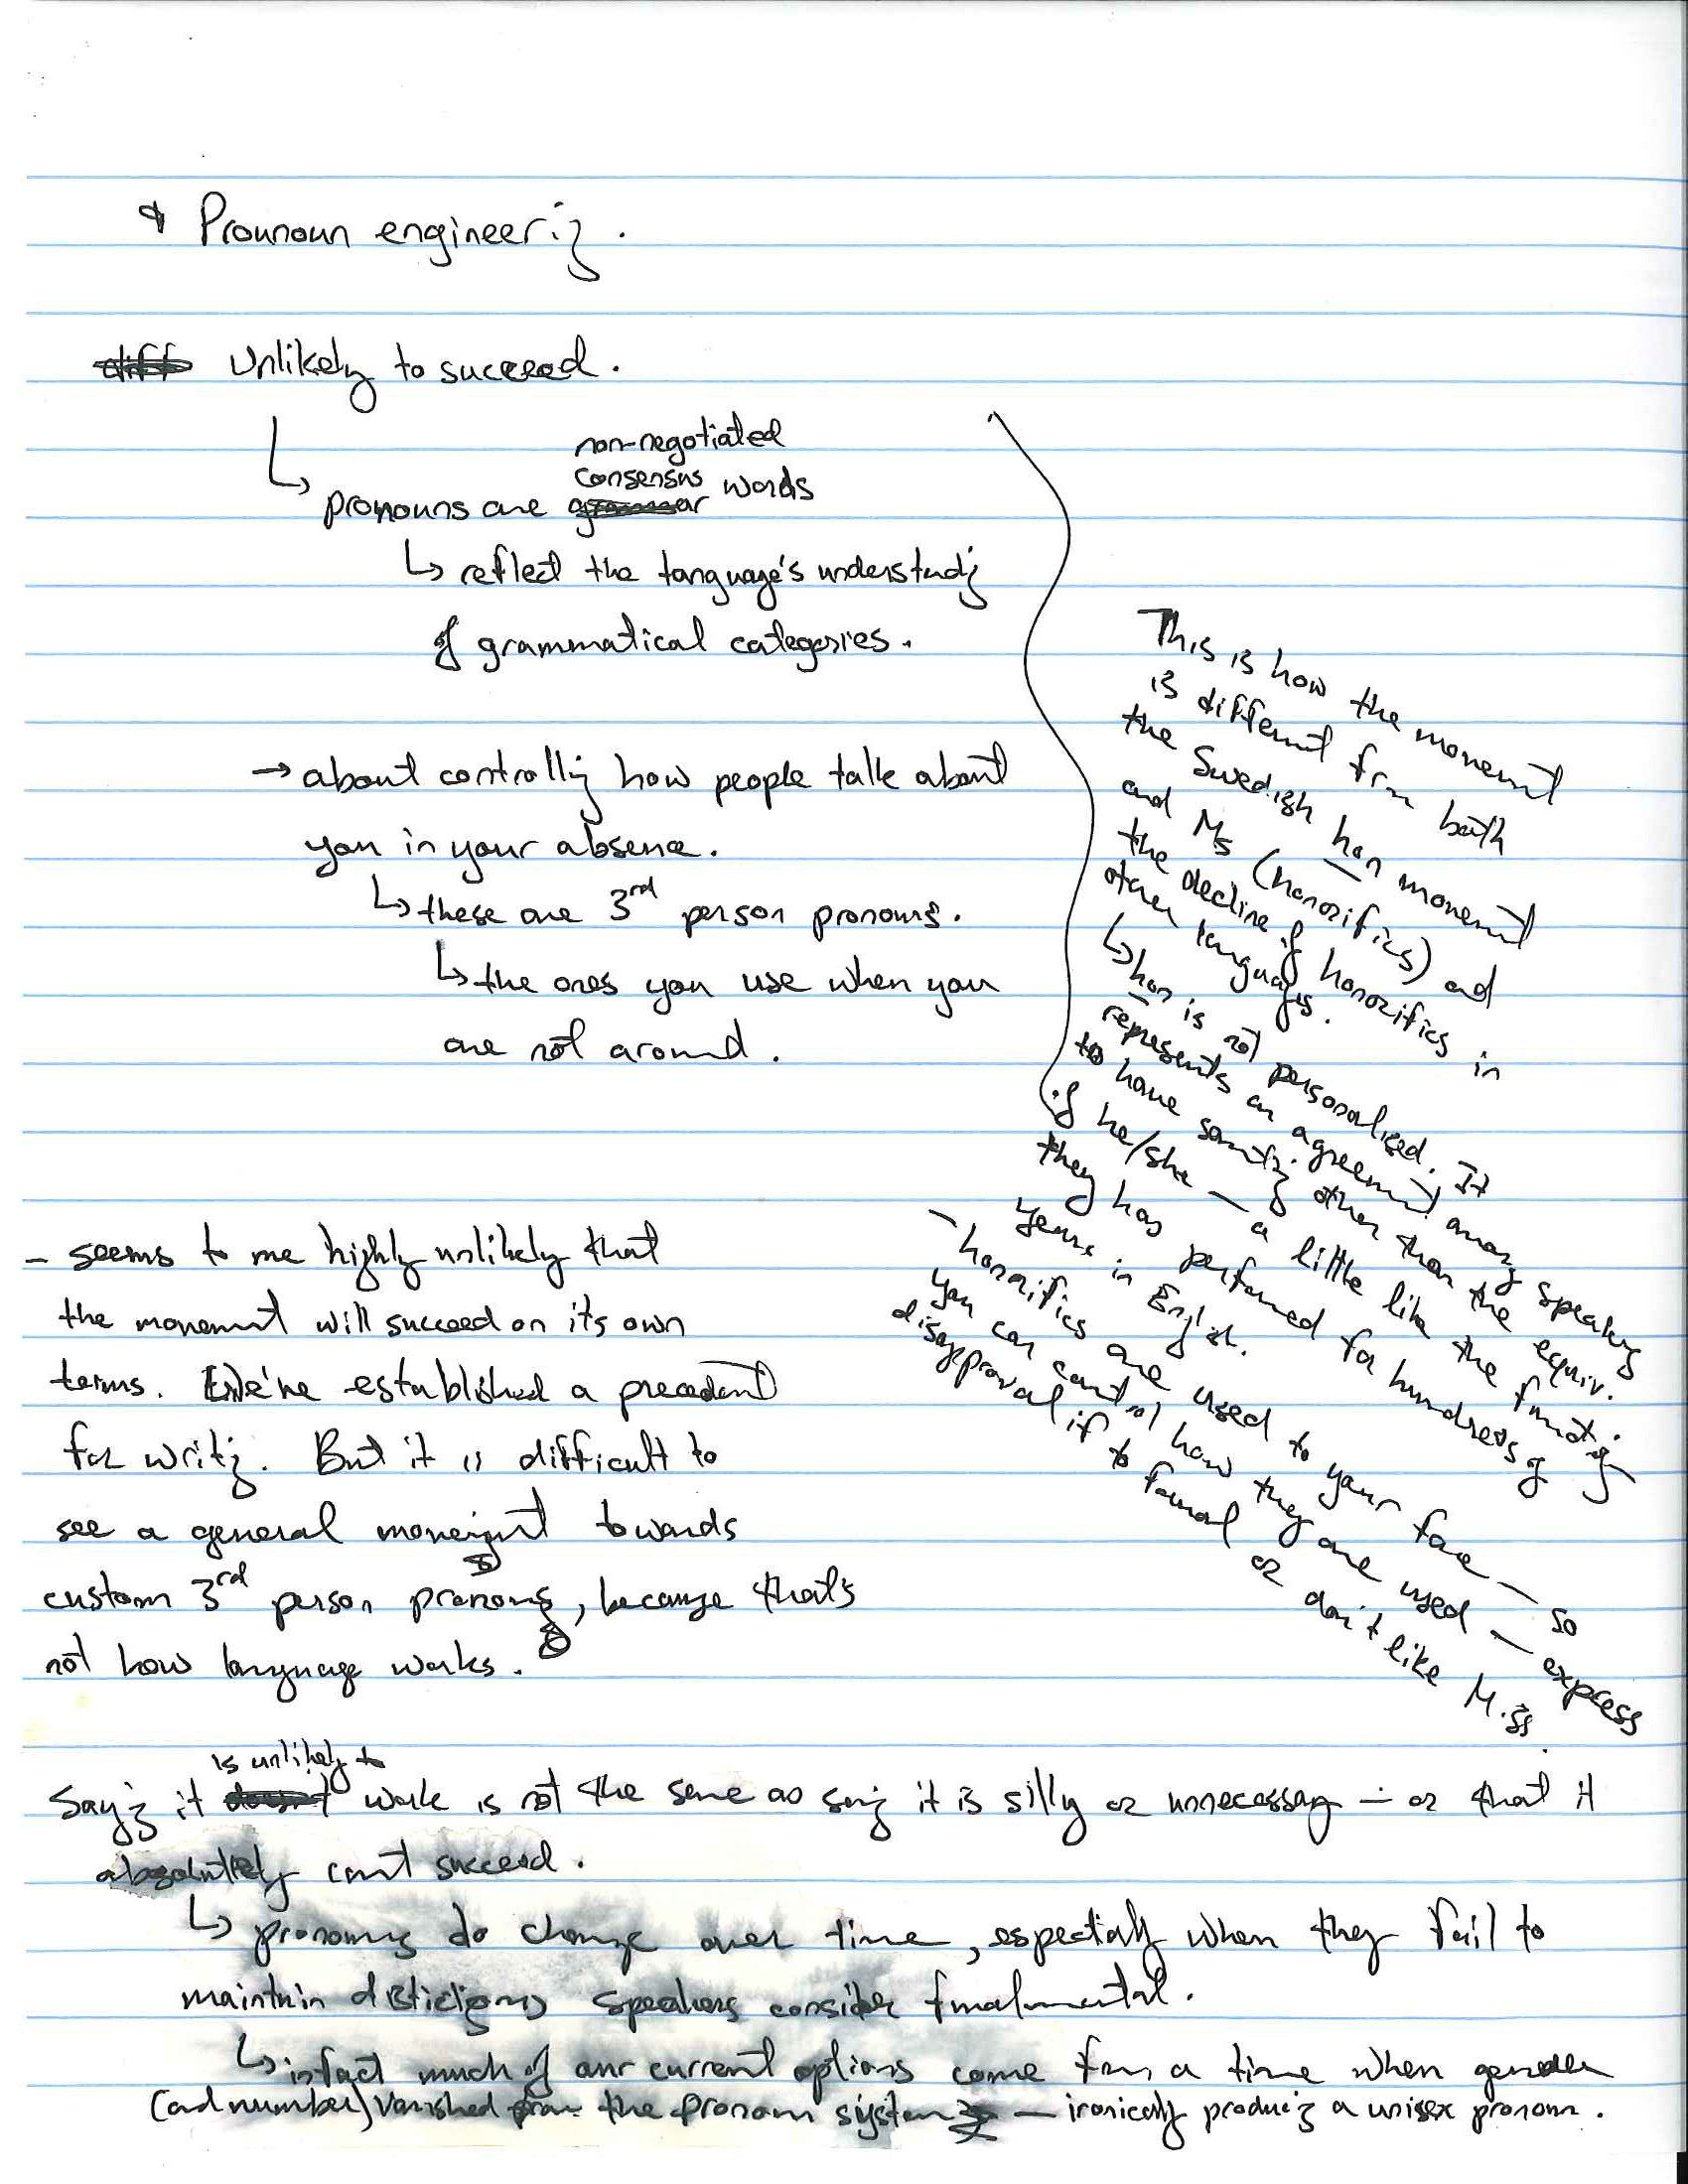 Prounoun engineering.
diff Unlikely to succeed.
non-negotiated
consensus words
pronouns are grammar
↳ reflect the language's understanding
of grammatical categories.
→ about controlling how people talk about
you in your absence.
↳ these are 3rd person pronouns.
↳ the ones you use when you
are not around.
This is how the movement
is different from both
the Swedish hen movement
and Ms (honorifics) and
the decline of honorifics in
other languages.
↳ hen is not personalised. It
represents an agreement among speakers
to have something other than the equiv.
of he/she — a little like the function
they has performed for hundreds of
years in English.
- honorifics are used to your face — so
you can control how they are used — express
disapproval if to formal or don't like M.ss.
- seems to me highly unlikely that
the movement will succeed on its own
terms. We've established a precedent
for writing. But it is difficult to
see a general movement towards
custom 3rd person pronouns, because that's
not how language works.
is unlikely to
Saying it doesn't work is not the same as saying it is silly or unnecessary — or that it
absolutely can't succeed.
↳ pronouns do change over time, especially when they fail to
maintain distictions speakers consider fundamental.
↳ in fact much of our current options come from a time when gender
(and number) vanished from the pronoun system — ironically producing a unisex pronoun.